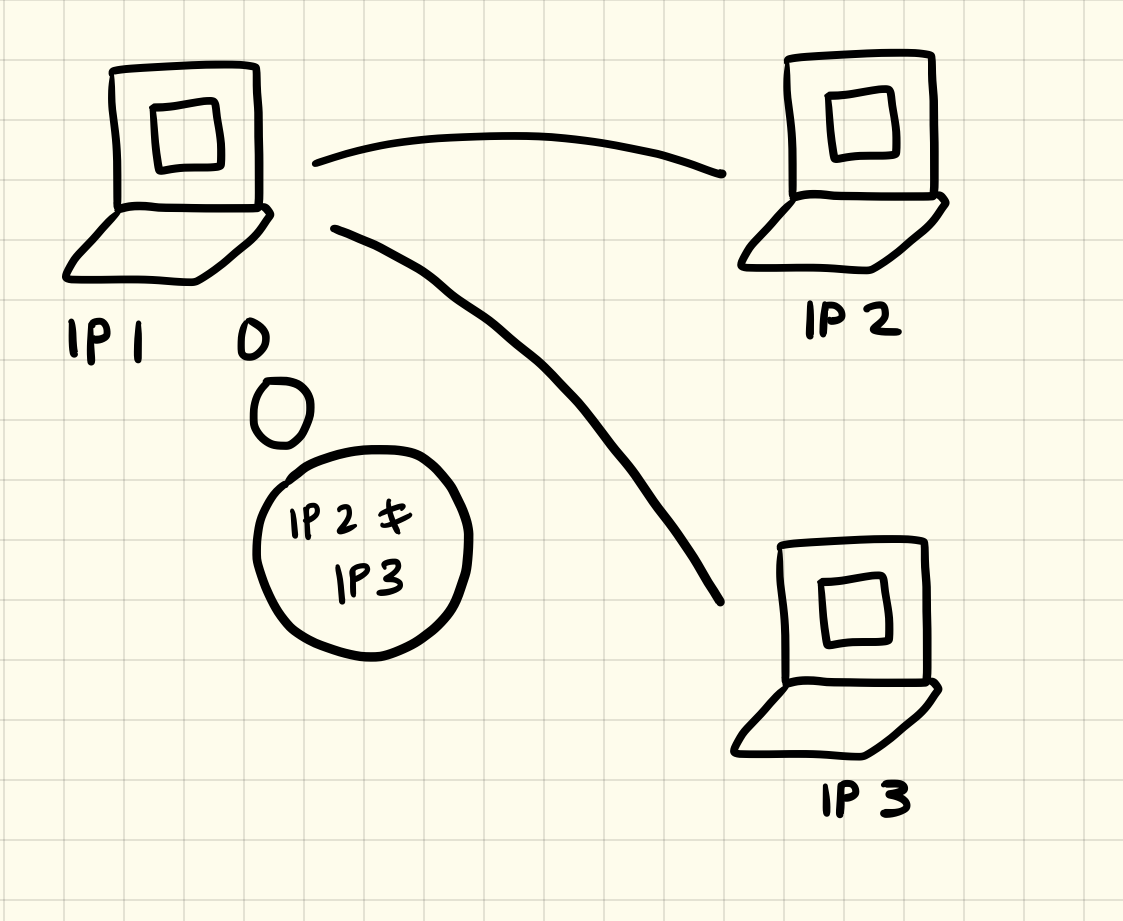 IP 1
IP 2
IP 2 ≠
IP3
IP 3